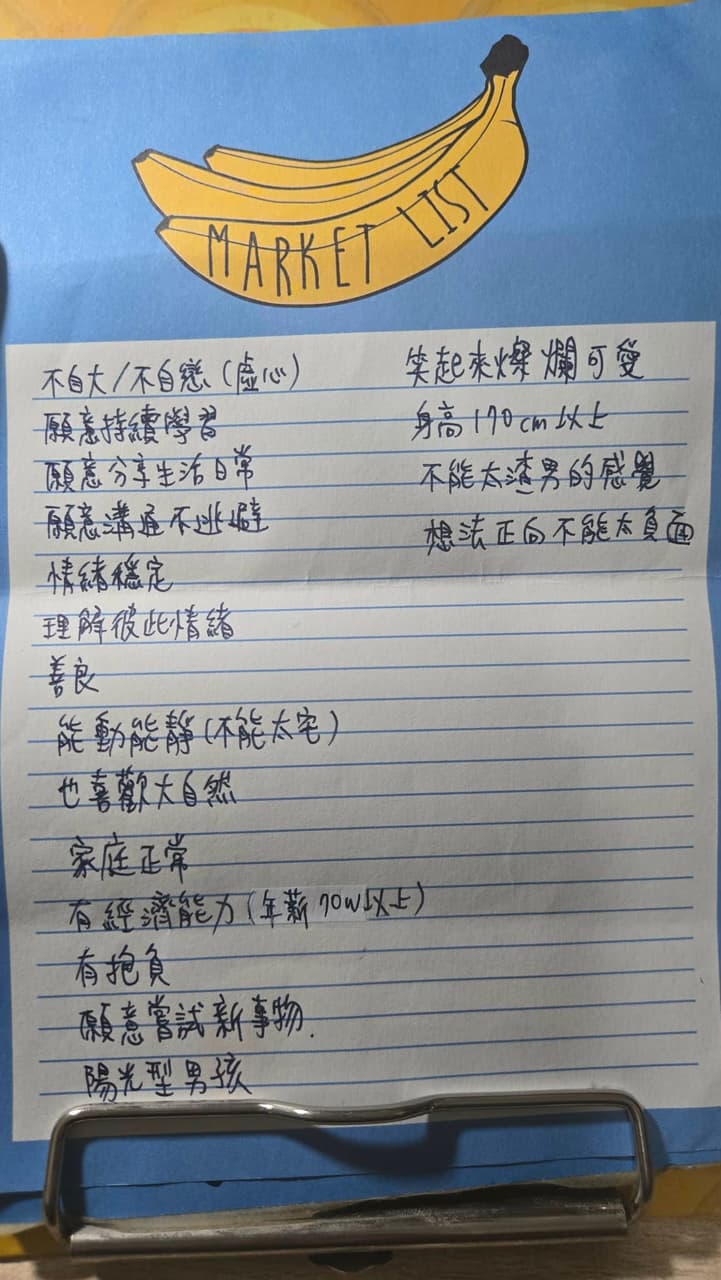 MARKET LIST
不自大/不自戀(虛心)
願意持續學習
願意分享生活日常
願意溝通不逃避
情緒穩定
理解彼此情緒
善良
能動能靜(不能太宅)
也喜歡大自然
家庭正常
有經濟能力(年薪70W以上)
有抱負
願意嘗試新事物.
陽光型男孩
笑起來燦爛可愛
身高170cm以上
不能太渣男的感覺
想法正向不能太負面